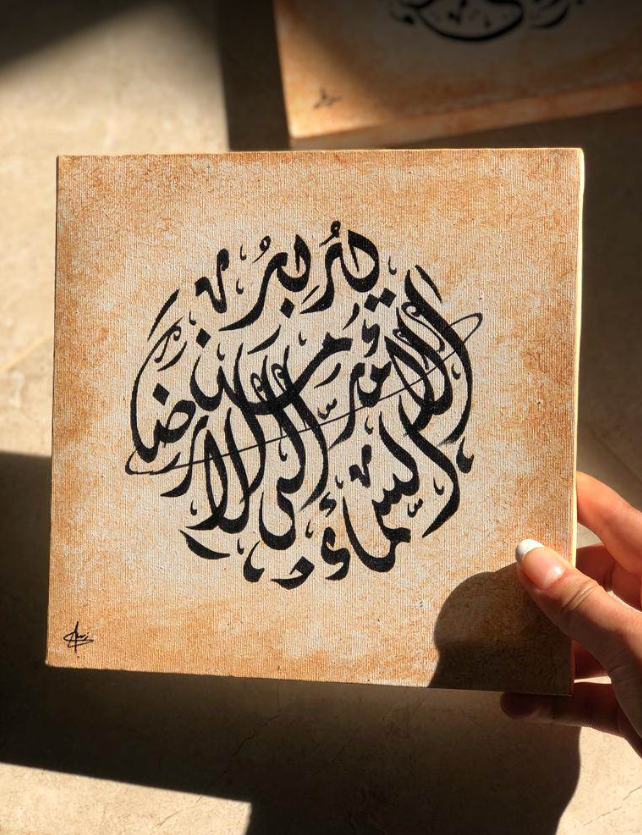 يُدَبِّرُ الأمر من السماء إلى الأرض